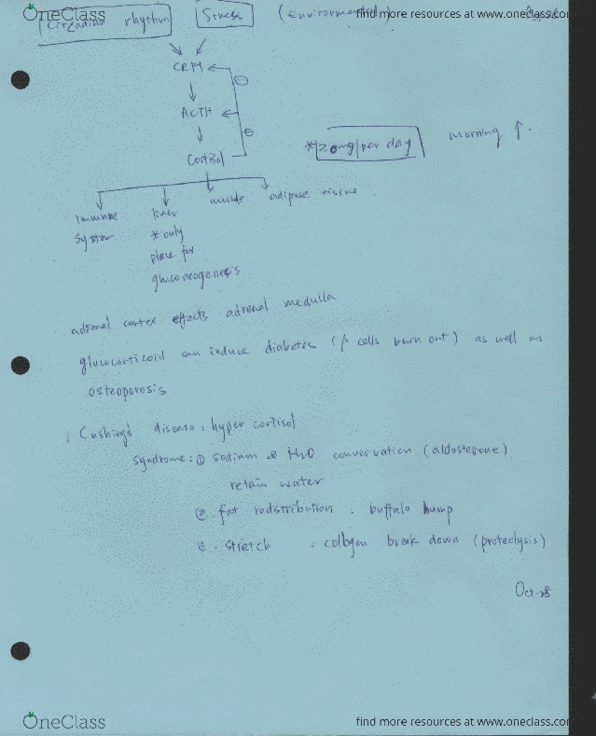 OneClass
find more resources at www.oneclass.com
Circadian rhythm
Stress
(Environmental)
CRH
⊖
ACTH
⊖
Cortisol
*20mg/per day
morning ↑.
immune system
liver
* only
place for
gluconeogenesis
muscle
adipose tissue
adrenal cortex effects adrenal medulla
glucocorticoid can induce diabetes (β cells burn out) as well as
osteoporosis
Cushing's disease: hyper cortisol
syndrome: ① sodium & H2O conservation (aldosterone)
retain water
② fat redstribution : buffalo hump
stretch : collagen break down (proteolysis)
Oct-28
OneClass
find more resources at www.oneclass.com